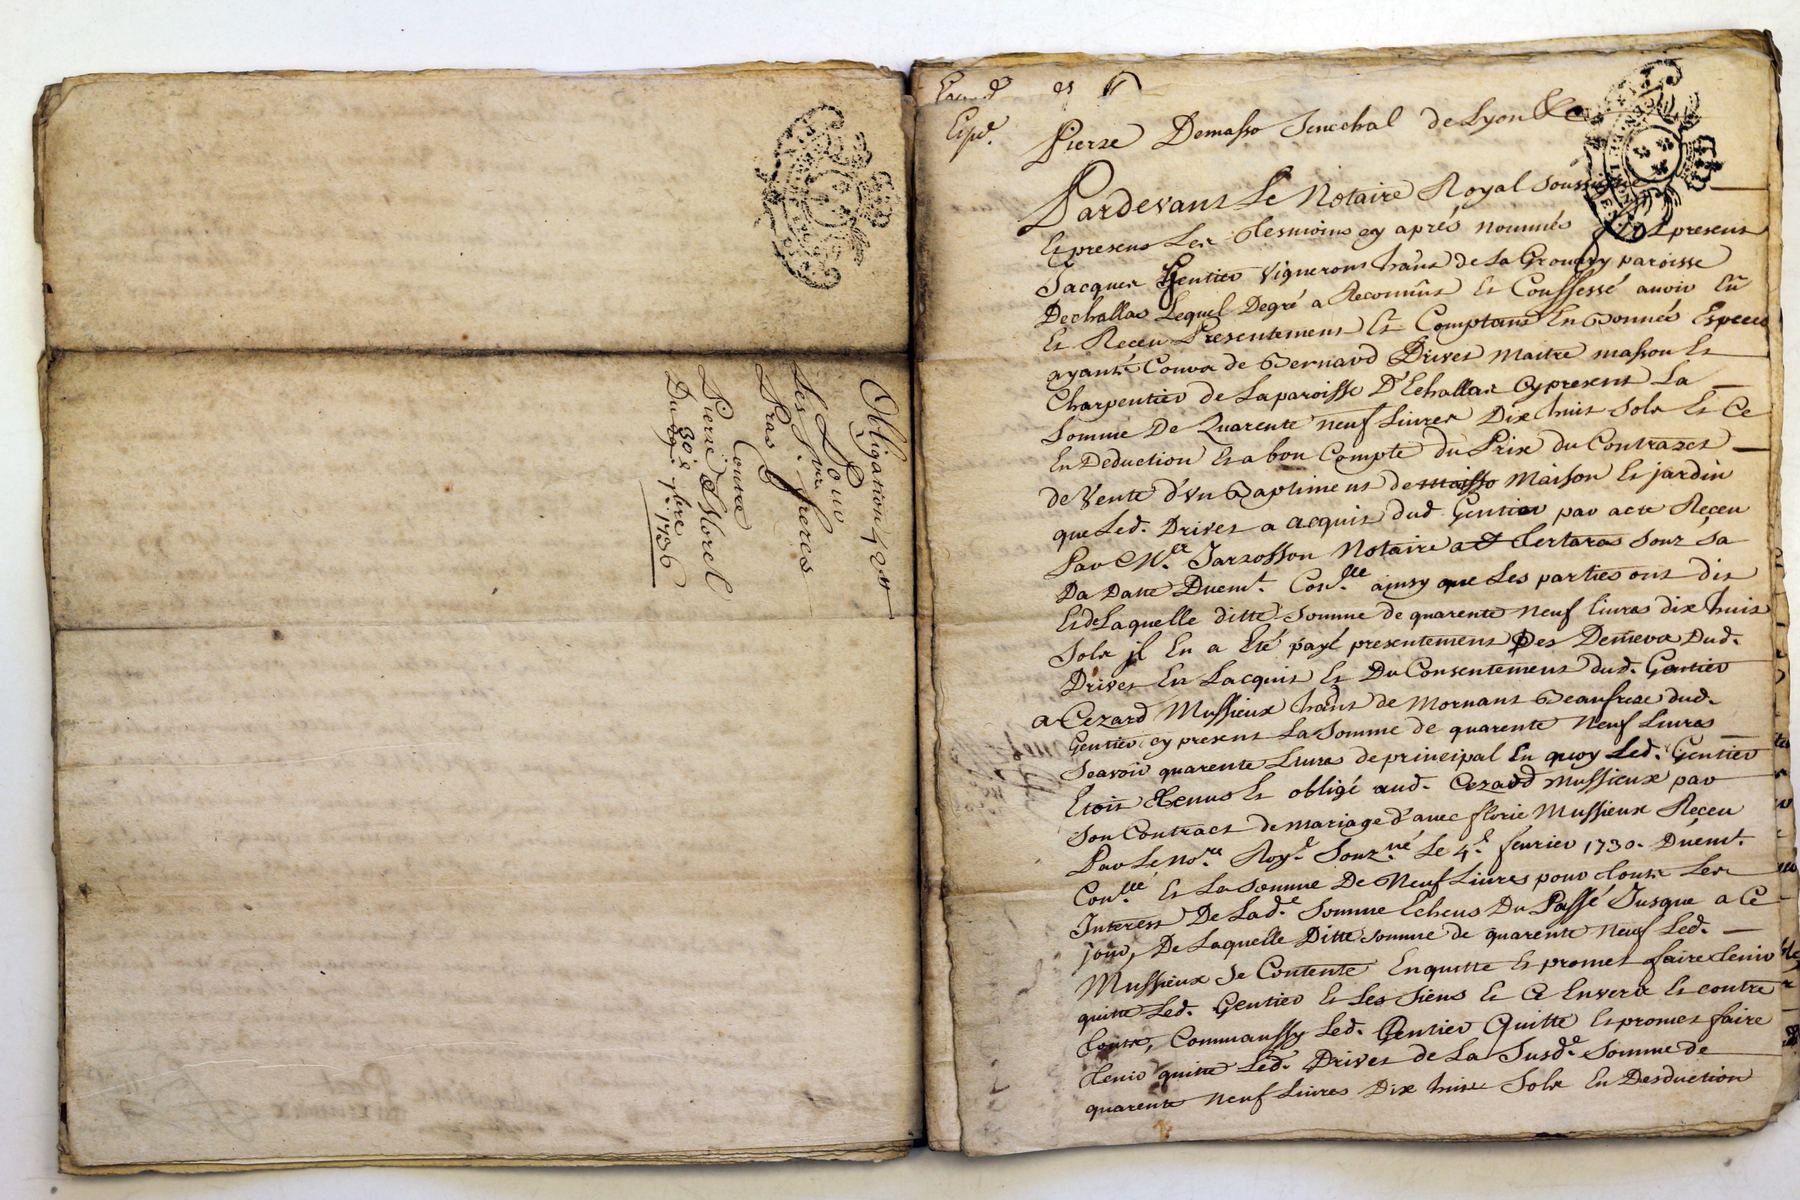 Obligation 42ll
Pour
Les Srs freres
Pras
Contre
Pierre Morel
Du 30e 7bre 1736
Expd.
Pierre Demasso Senechal de Lyon &c
Pardevant Le Notaire Royal soussigné
Et presens Les tesmoins cy aprés nommés present
Jacques Gentier vigneron hant de La paroisse
Dechallas Lequel Degré a Reconnût Et Conffessé avoir Eû
Et Receu Presentement Et Comptant En Bonnes Especes
ayants Cours de Bernard Drivet maitre masson Et
Charpentier de La paroisse D'Echallas Cypresent La
Somme De Quarente neuf Livres Dix huit Sols Et Ce
En Deduction Et a bon Compte du Prix du Contract
de Vente d'Vn Baptiment de maisso Maison Et jardin
que Led. Drivet a acquis dud. Gentier par acte Reçeu
Par Me. Jarrosson Notaire a et Tertaras Souz Sa
Da Datte Duemt. Conllé ainsy que Les parties ont dit
Et de Laquelle ditte Somme de quarente neuf livres dix huit
Sols jl En a Eté payé presentement Des Deniers Dud.
Drivet En Lacquit Et Du Consentement dud. Gentier
a Cezard Mussieux hant de Mornant Beaufrere dud.
Gentier cy present La Somme de quarente Neuf Livres
Scavoir quarente Livres de principal En quoy Led. Gentier
Etoit Tenus Et obligé aud. Cezard Mussieux par
Son Contract de mariage d'avec florie Mussieux Reçeu
Par Le Nore. Royl. Souzné Le 4e. fevrier 1730. Duëmt.
Conllé Et La Somme De Neuf Livres pour Toux Les
Interest De Lade. Somme Echeus Du Passé Jusque a Ce
jour, De Laquelle Ditte somme de quarente neuf Led.
Mussieux Se Contente Enquitte Et promet faire tenir
quitte Led. Gentier Et Les Siens Et Ce Envers Et contre
toux, Commaussy Led. Gentier Quitte Et promet faire
Tenir quitte Led. Drivet de La Susde. Somme de
quarente Neuf Livres Dix huit Sols En Desduction